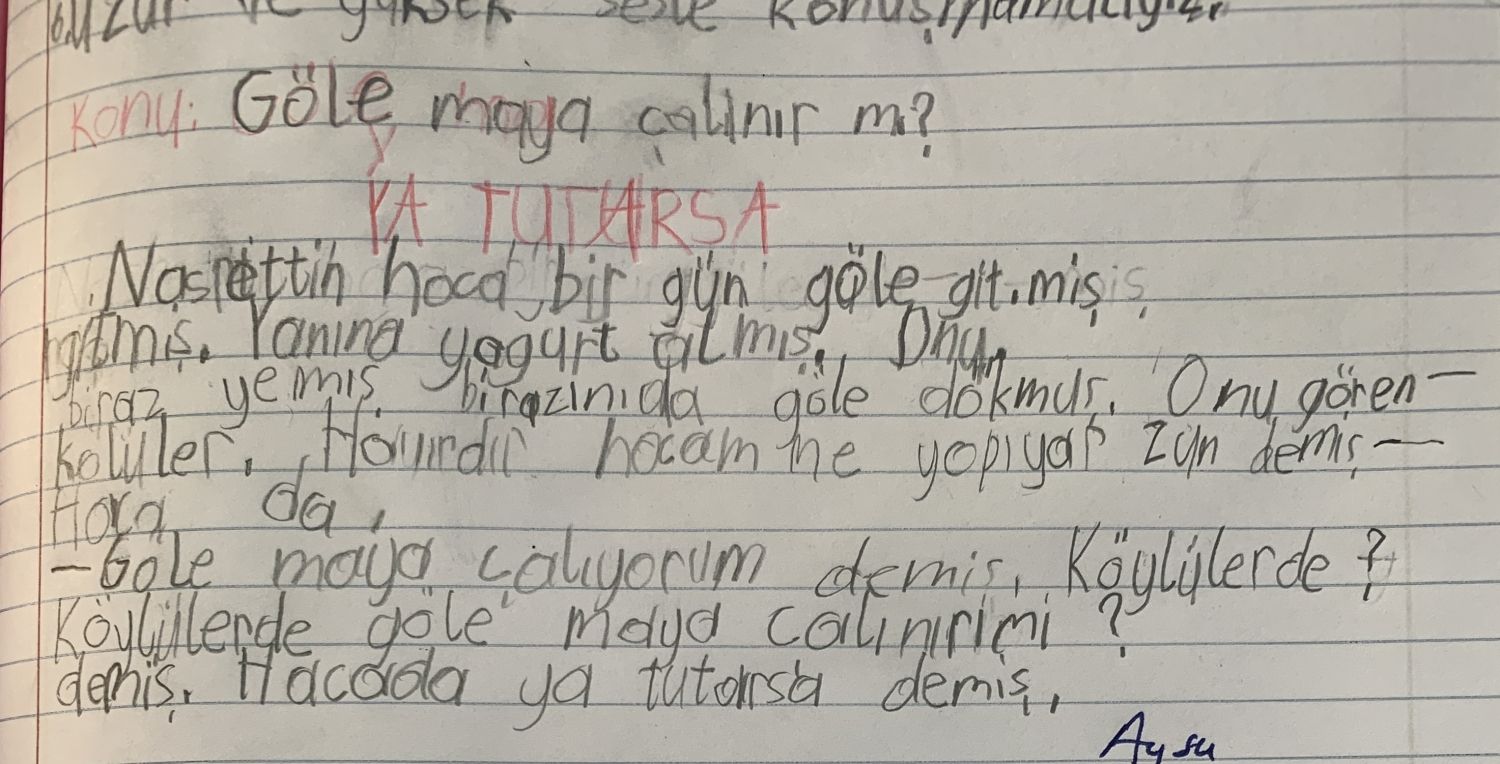 yüksek sesle konuşmamalıyız.
Konu: Göle maya çalınır mı?
YA TUTARSA
Nasrettin hoca bir gün göle git.miş
gitmiş. Yanına yogurt almış. Onun
biraz yemiş birazınıda göle dökmüş. Onu gören-
kölüler. Hayırdır hocam ne yapıyar zun demiş-
Hoca da,
-Göle maya çalıyorum demiş. Köylülerde?
Köylülerde göle maya calınırimi?
demiş. Hacada ya tutarsa demiş.
Aysu